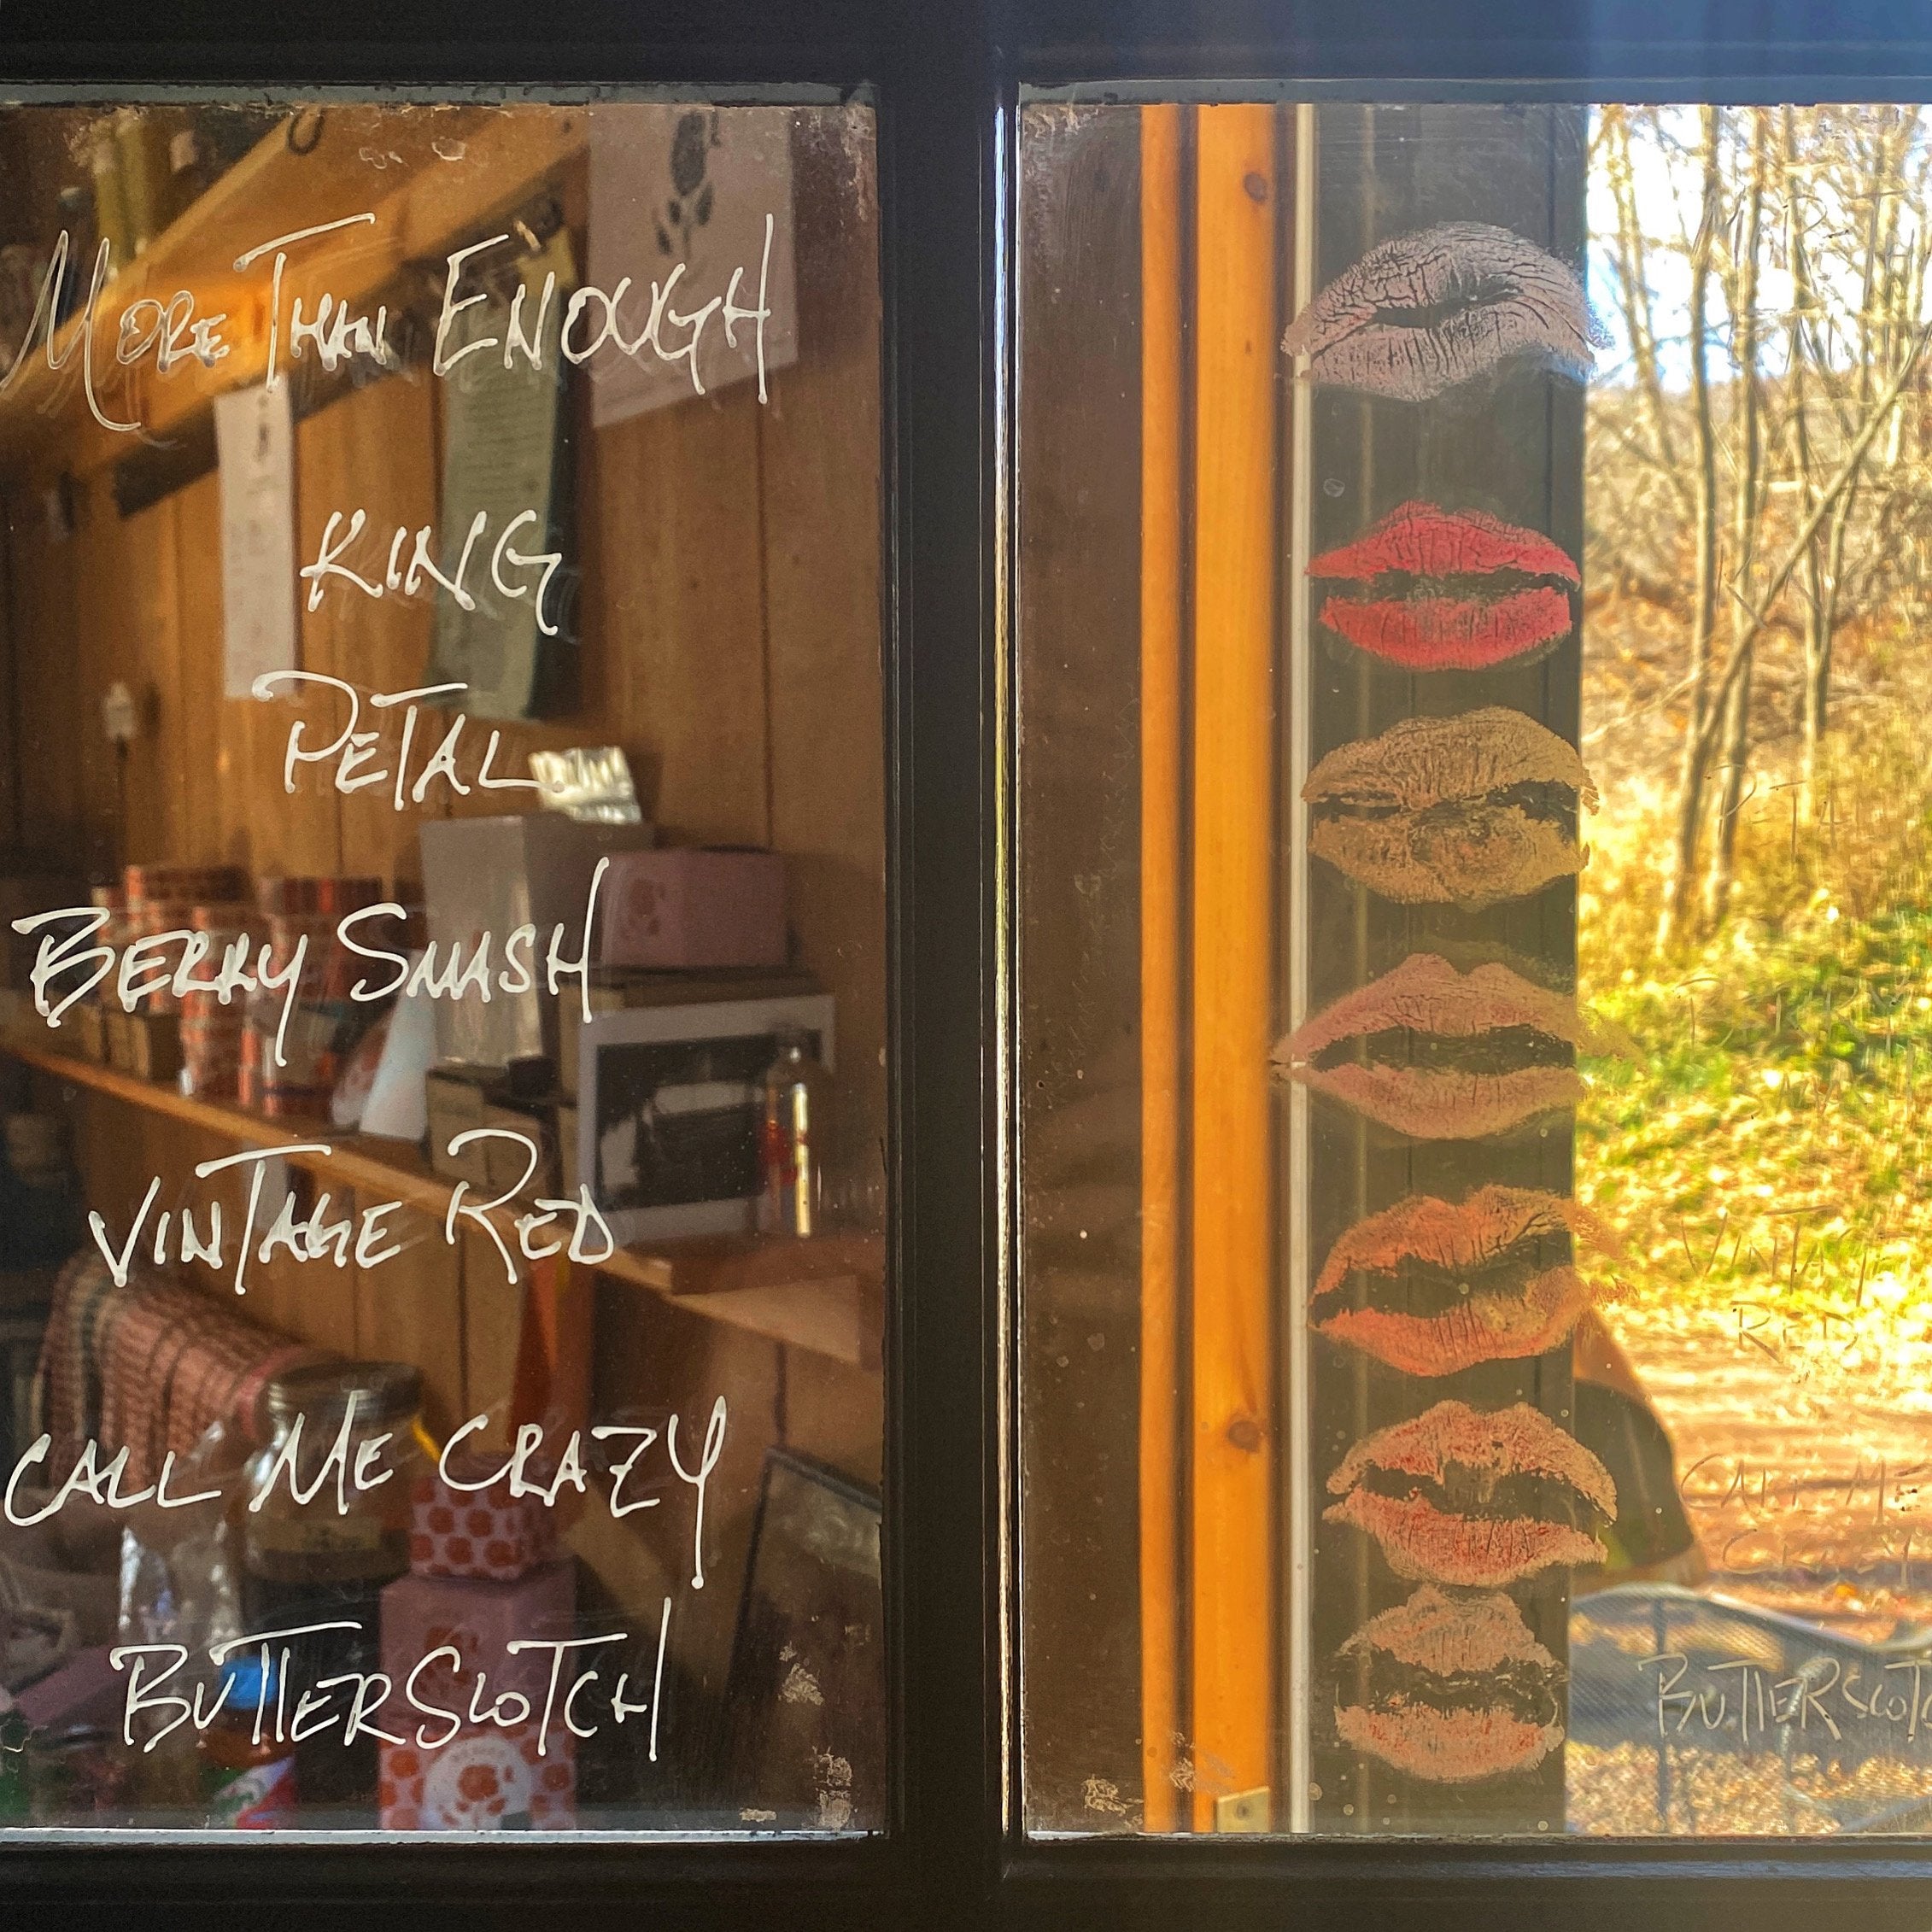 More Than Enough
KING
PETAL
BERRY SMASH
VINTAGE RED
CALL ME CRAZY
BUTTERSCOTCH
PETAL
VINTAGE
RED
CALL ME
CRAZY